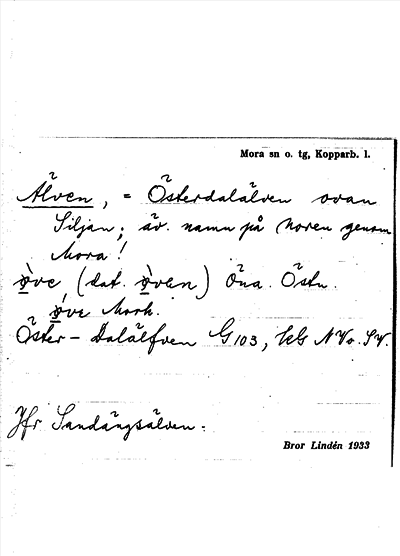 Mora sn o. tg, Kopparb. l.
Älven, = Österdalälven ovan
Siljan; äv. namn på Noren genom
Mora!
ǫ̀ve (dat. ǫ̀ven) Öna. Östn.
ǫ́ve Mork.
Öster-Dalälfven G 103, kG NVo. SV.
Jfr Sandängsälven.
Bror Lindén 1933